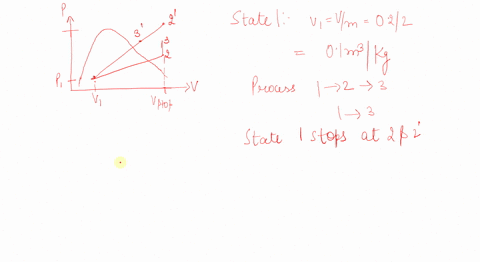 P
2'
3'
3
2
P₁
V₁
Vstop
V
State 1:- V₁ = V/m = 0.2/2
= 0.1m³/Kg
Process 1→2→3
1→3
State 1 stops at 2